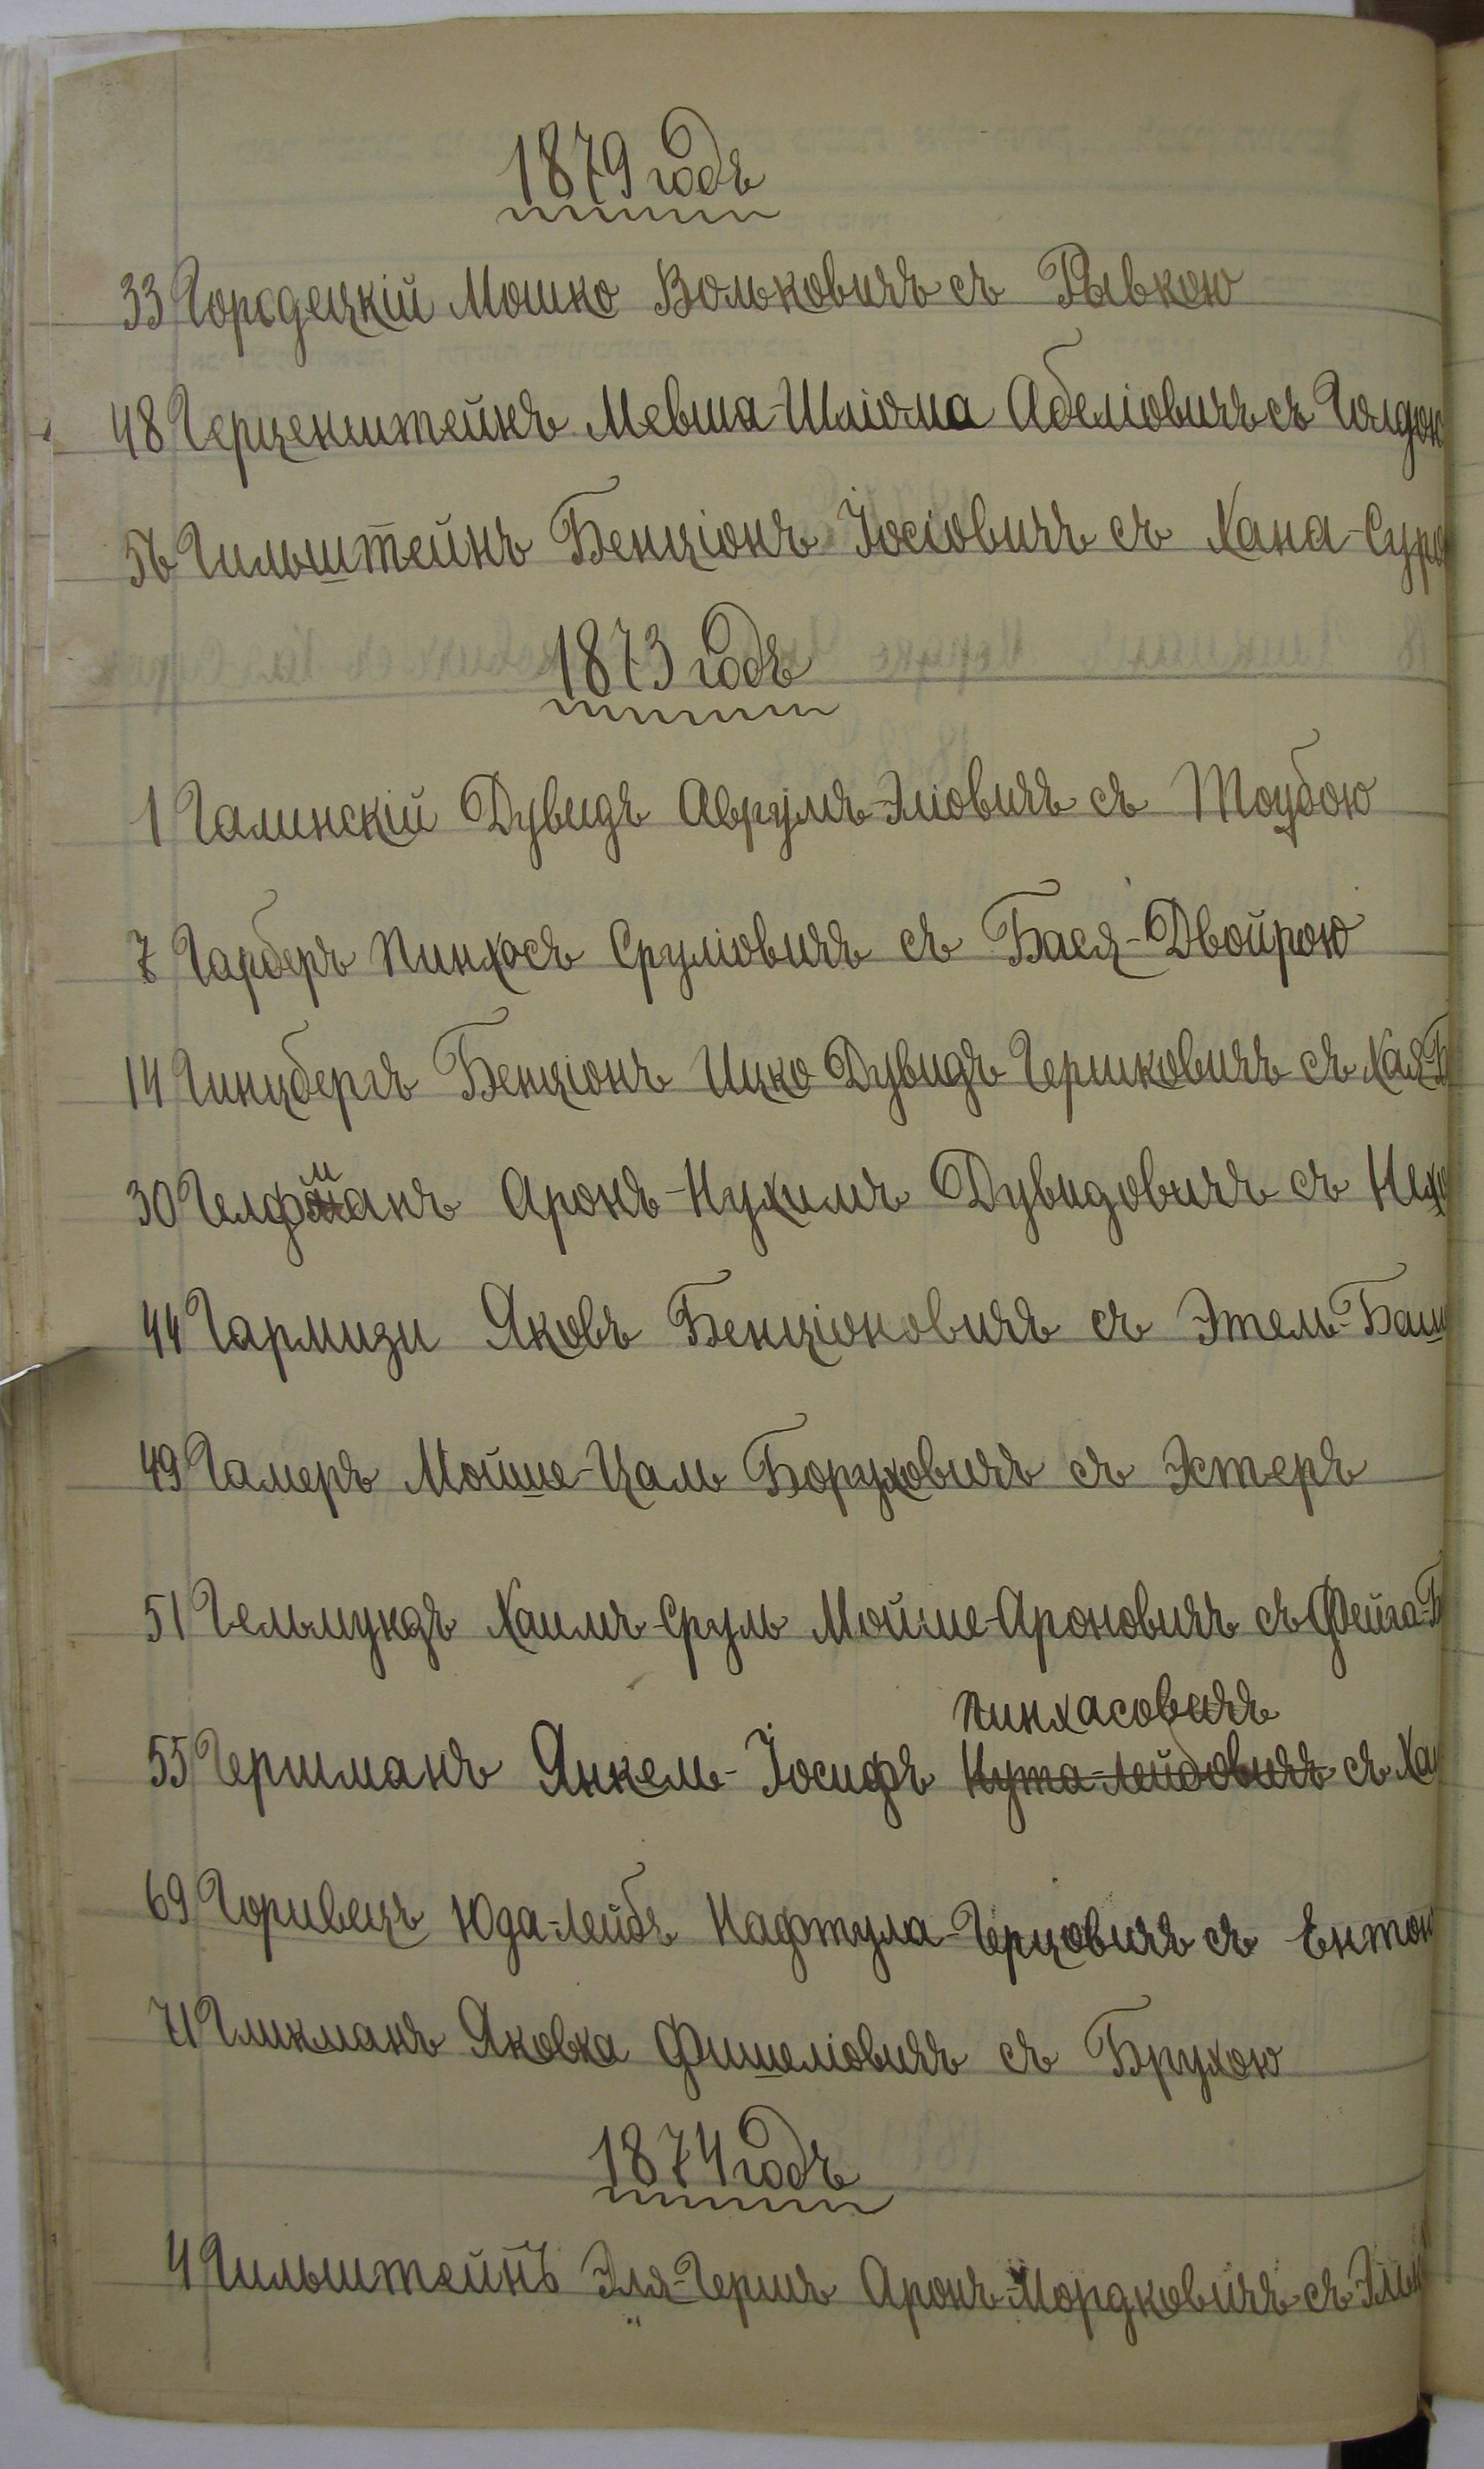 1879 годъ
33 Городецкій Мошко Вольковичъ съ Рывкою
48 Герценштейнъ Мевша-Шліома Абеліовичъ съ Голдою
56 Гильштейнъ Бенціонъ Іосіовичъ съ Хана-Суро
1873 годъ
1 Галинскій Дувидъ Аврумъ-Эліовичъ съ Тоубою
7 Гарберъ Пинхосъ Сруліовичъ съ Бася-Двойрою
14 Гинцбергъ Бенціонъ Ицко Дувидъ Гершковичъ съ Хая-Б
30 Гелфманъ Аронъ-Нухимъ Дувидовичъ съ Нехо
44 Гармизи Яковъ Бенціоновичъ съ Этель-Баш
49 Гамеръ Мойше-Цаль Боруховичъ съ Эстеръ
51 Гельмундъ Хаимъ-Сруль Мойше-Ароновичъ съ Фейга-Б
Пинхасовичъ
55 Гершманъ Янкель-Іосифъ Нута-Лейбовичъ съ Ха
69 Горивецъ Юда-Лейбъ Нафтула-Герцовичъ съ Ентою
71 Гликманъ Яковка Фишеліовичъ съ Брухою
1874 годъ
4 Гильштейнъ Эля-Гершъ Аронъ-Мордковичъ съ